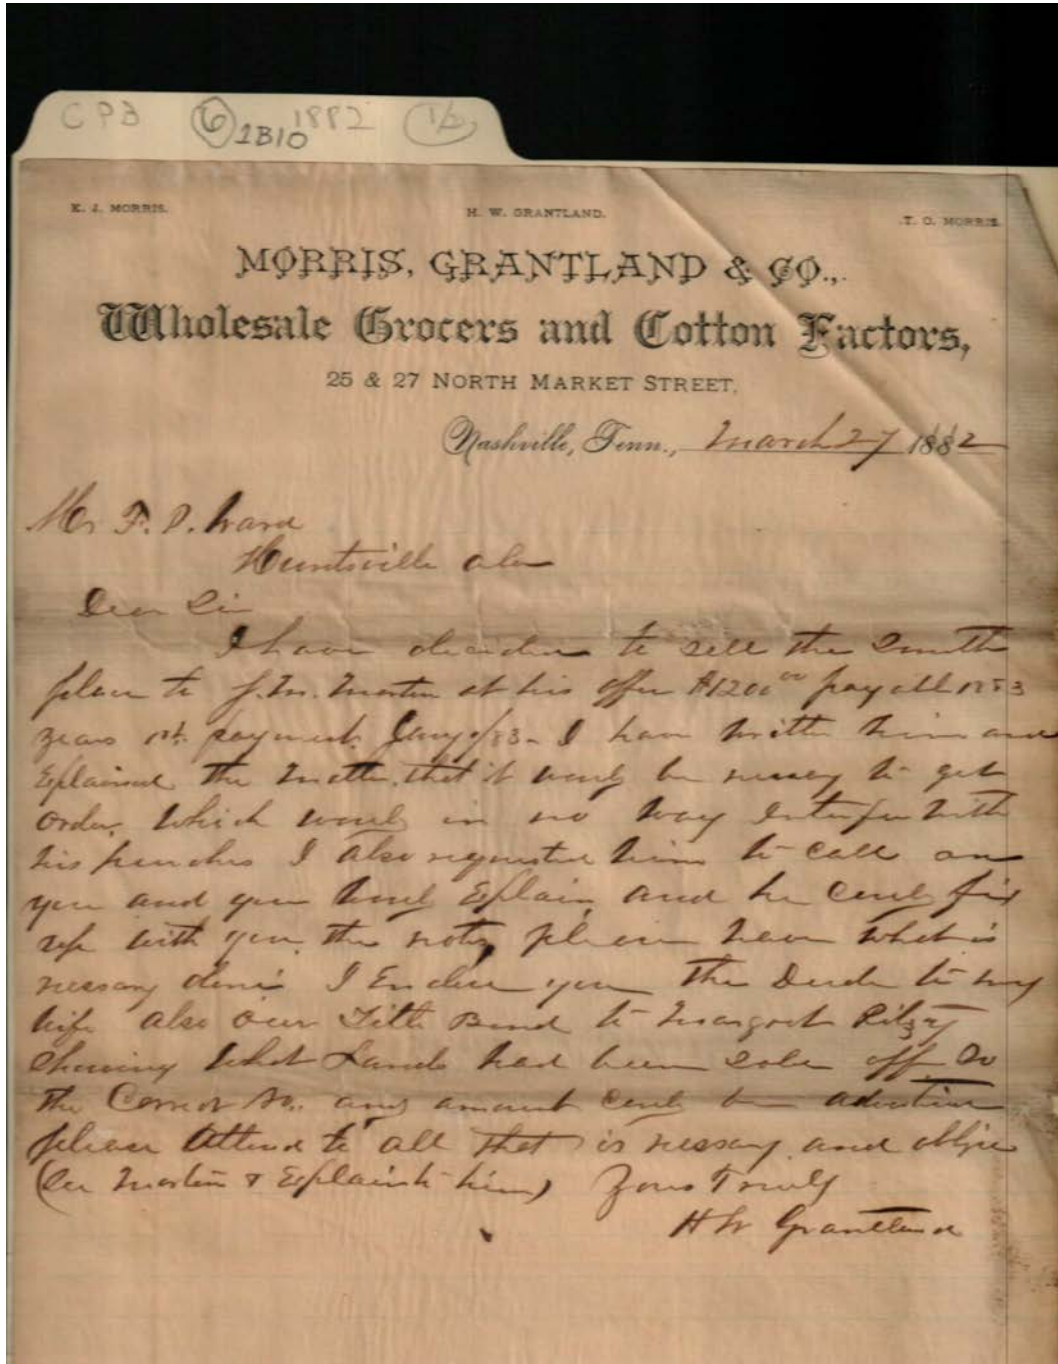 CPB 6 1B10 1882 1/2
K. J. MORRIS. H. W. GRANTLAND. T. O. MORRIS.
MORRIS, GRANTLAND & CO.,
Wholesale Grocers and Cotton Factors,
25 & 27 NORTH MARKET STREET,
Nashville, Tenn., March 27 1882
Mr F. P. Ward
Huntsville Ala
Dear Sir
I have decided to sell the Smith
place to J. M. Martin at his offer $1200 00 pay all 1 2 & 3
years 1st payment Jany 1/83 - I have written him and
Explained the matter that it would be nessary to get
order. Which would in no way Interfer with
his purchas I also requested him to call on
you and you would Explain and he could fix
up with you the notes, please have what is
nessary done I Enclose you the Deede to my
wife also our Title Bond to Margret
Showing What Lands had been sold off so
the Correct No. and amount could be
please Attend to all that is nessary and oblige
(See Martin & Explain to him) Yours Truly
H W Grantland